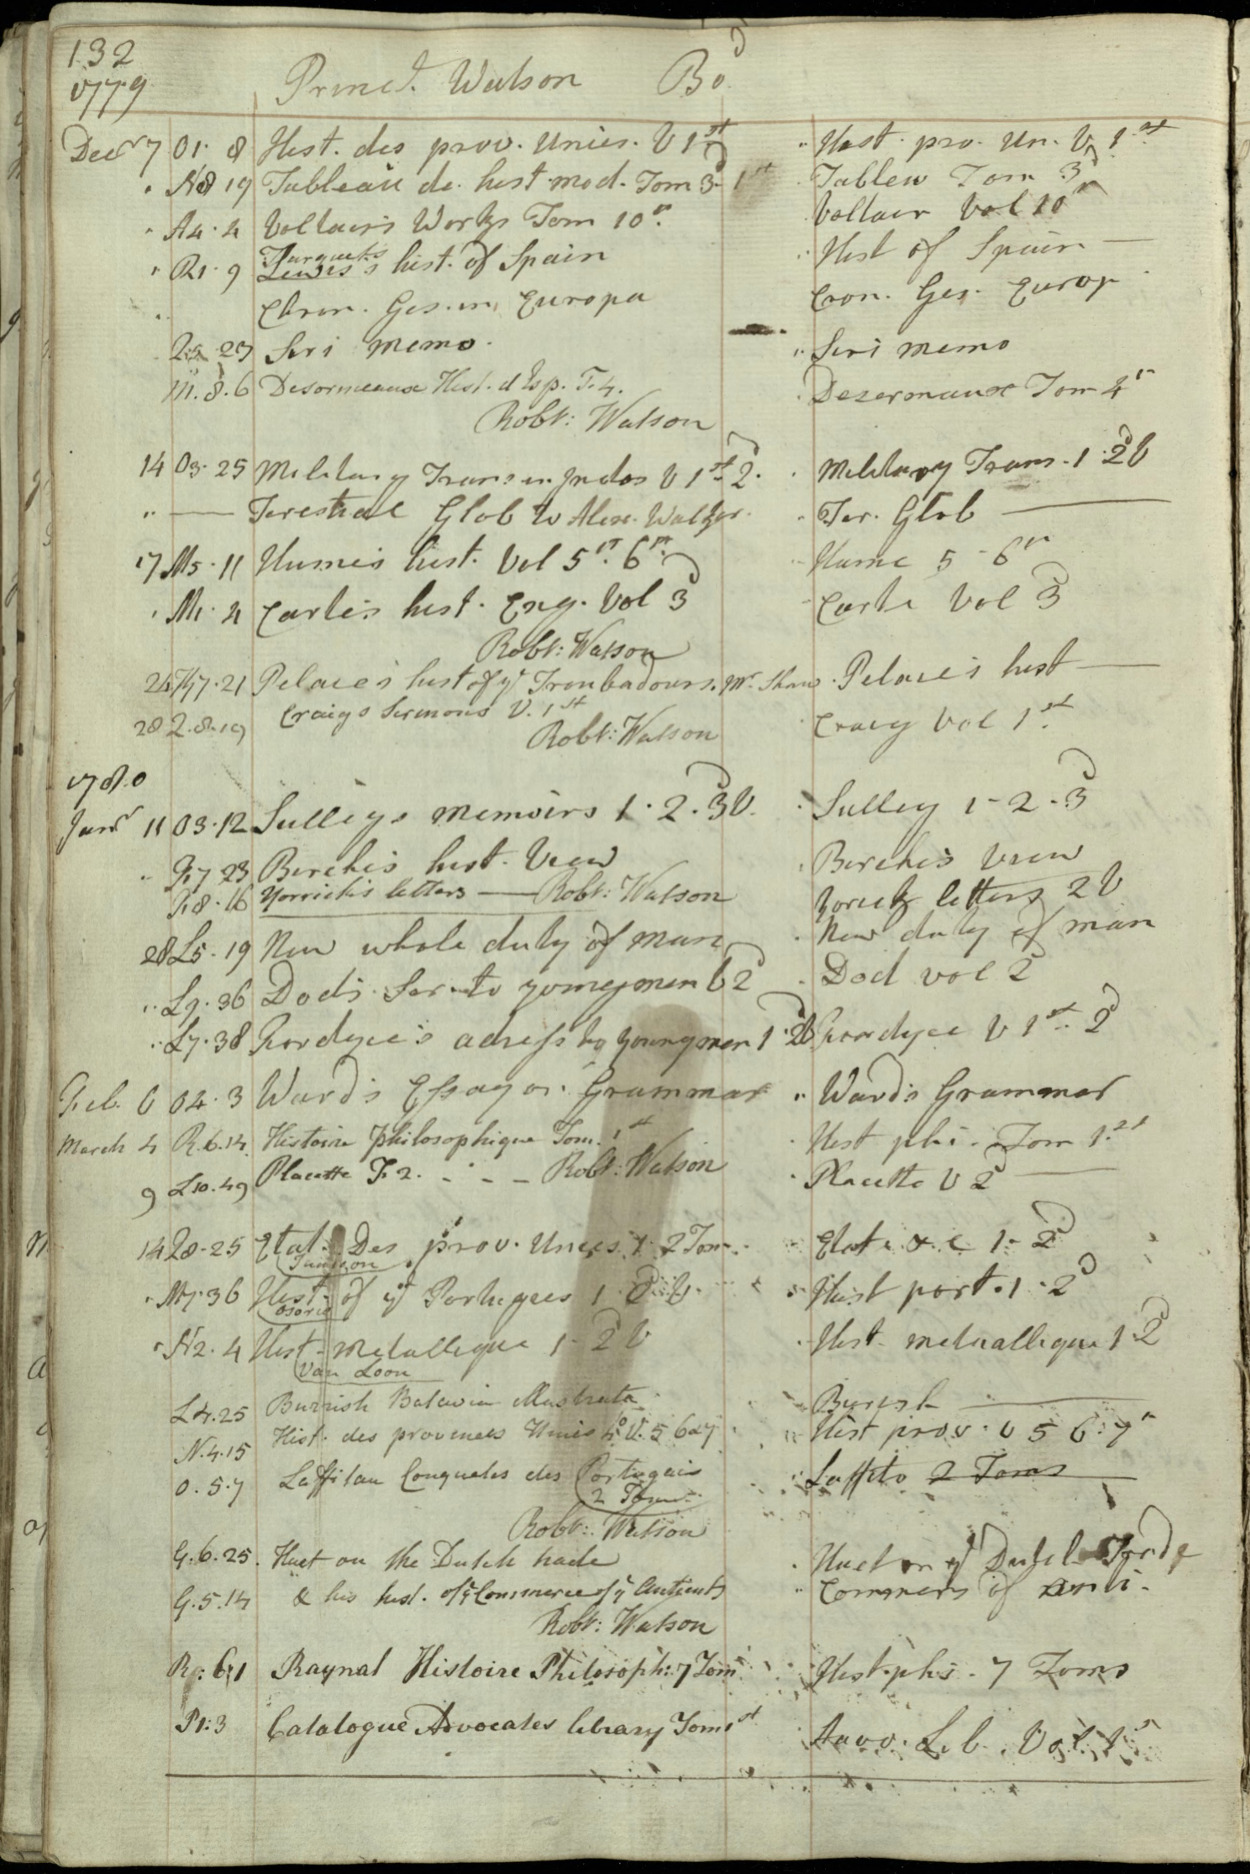 132
1779 Princl. Watson Bod
Decr 7 O1. 8 Hist. des prov. Unies. V 1st " Hist. pro. Un. V. 1st
" N8 19 Tableau de hist. mod. Tom 3d 1st Tablew Tom 3d
" A4. 4 Voltairs Works Tom 10th Voltair Vol 10th
" R1. 9 Turquet's
Lewis's hist. of Spain Hist of Spain
Chron. Ges. in Europa Cron. Ges. Europ
23 Siri memo. " Siri memo
M. 8. 6 Desormeaux Hist. d'Esp. T. 4. Dezermaux Tom 4th
Robt: Watson
14 O3. 25 Military Trans in Indos V 1st 2d. Military Trans. 1. 2d V
" Terestial Glob to Alexr. Walker Ter. Glob
17 M5. 11 Humes hist. Vol 5th. 6th Hume 5 - 6th
" M1. 4 Carte's hist. Eng. Vol 3d Carte Vol 3d
Robt: Watson
7. 21 Pelace's hist of ye Troubadours. Mr. Shaw. Pelace's hist
28 2. 8. 19 Craigs Sermons V. 1st Craig Vol 1st
Robt: Watson
1780
Janr 11 O3. 12 Sulleys memoirs 1. 2. 3d V. Sulley 1 - 2 - 3d
" 7 23 Birche's hist. View Birche's View
8. 16 Yorrick's letters — Robt: Watson Yorick letters 2 V
28 L5. 19 New whole duty of man New duty of man
" L9. 36 Dod's Ser. to yongmen V 2d Dod vol 2d
" L7. 38 Fordyce's adress to youngmen 1. 2d Fordyce V 1st 2d
Feb. 6 O4. 3 Ward's Essay on Grammar " Ward's Grammar
March 4 R. 6. 14. Histoire Philosophique Tom. 1st Hist phi. Tom 1st
9 L10. 49 Placette T. 2. - - - Robt: Watson Placette V 2d
14 28. 25 Etat. Des prov. Unies 1. 2 Tom. Etat &c 1 - 2d
Janison
" M7. 36 Hist. of ye Portugees 1. 2d V. Hist port. 1. 2d
Osorio
" N2. 4 Hist. metallique 1 - 2d V Hist. metuallique 1 - 2d
Van Loon
L4. 25 Burrish Batavia illustrata Burish
N. 4. 15 Hist. des provences Unies 4o V. 5 6 & 7 Hist prov. V 5 6. 7th
O. 5. 7 Laffitau Conquetes des Portugais Laffito 2 Toms
2 Tom.
Robt: Watson
G. 6. 25. Huet on the Dutch trade Huet on ye Dutch Trade
G. 5. 14 & his hist. of ye Commerce of ye Antients Commers of anti.
Robt: Watson
Raynal Histoire Philosoph: 7 Tom Hist. phi. 7 Toms
P1: 3 Catalogue Advocates library Tom 1st Advo. Lib. Vol 1st